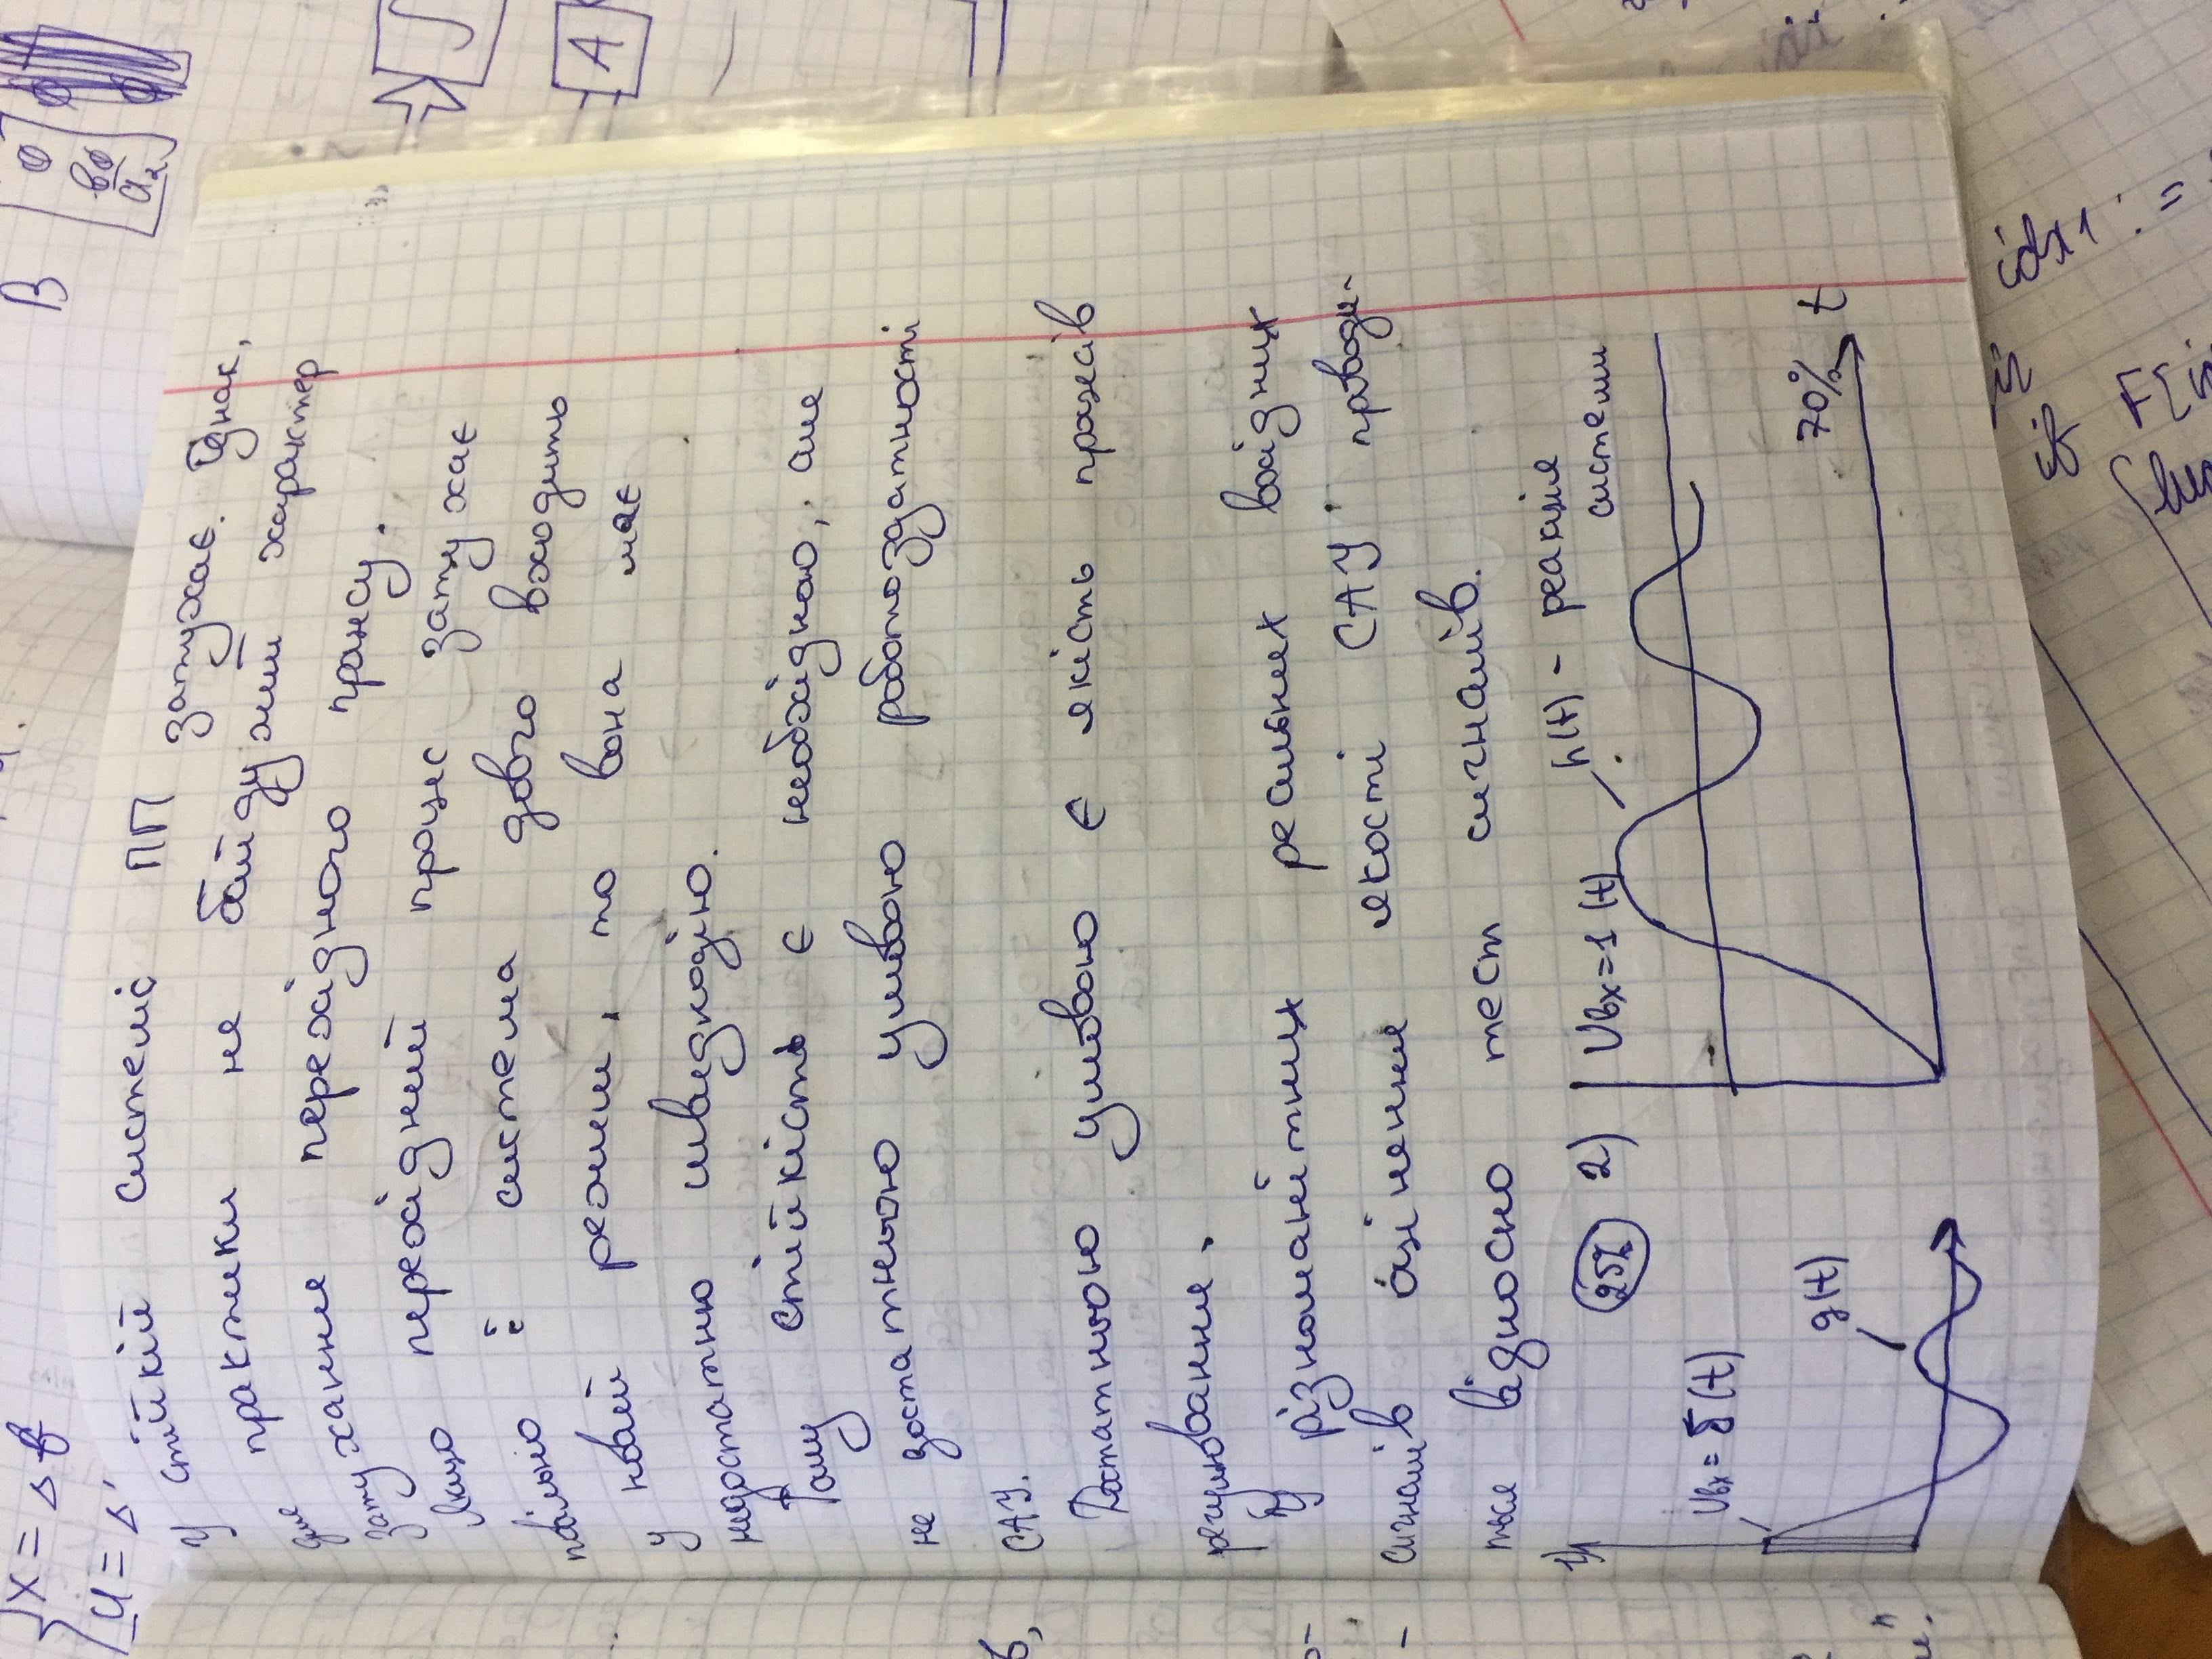 { x = Δ
У стійкій системі ПП затухає. Однак,
для практики не байдужий характер
затухання перехідного процесу.
Якщо перехідний процес затухає
повільно і система довго входить
у новий режим, то вона має
недостатню швидкодію.
Тому стійкість є необхідною, але
не достатньою умовою роботоздатності
САУ.
Достатньою умовою є якість процесів
регулювання.
У різноманітних реальних вхідних
сигналів оцінення якості САУ проводи-
ться відносно тест сигналів.
1)
25%
2)
Uвх = 1(t)
h(t) - реакція
системи
Uвх = δ(t)
g(t)
70%
t
B
0
b0
a2
∫
A
idx1 :=
if